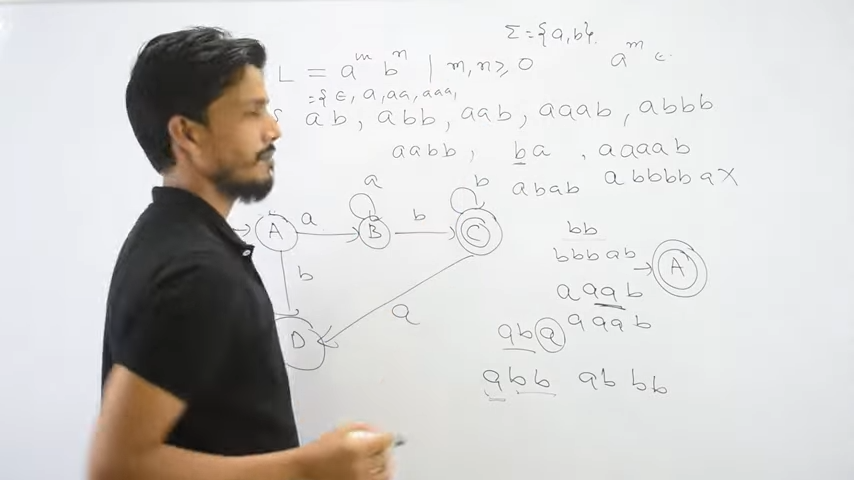 Σ = {a, b}
L = a^m b^n | m, n ≥ 0 a^m ϵ
= { ϵ, a, aa, aaa,
ab, abb, aab, aaab, abbb
aabb, ba, aaaab
abab abbbba X
a b
A a B b C
b
a
D
bb
bbbab
A
aaab
aba aaab
abb abbb